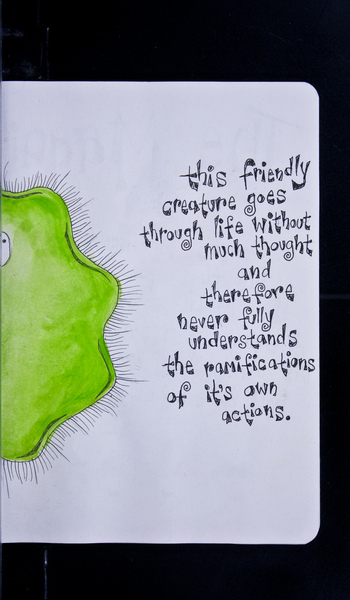 this friendly
creature goes
through life without
much thought
and
therefore
never fully
understands
the ramifications
of it's own
actions.